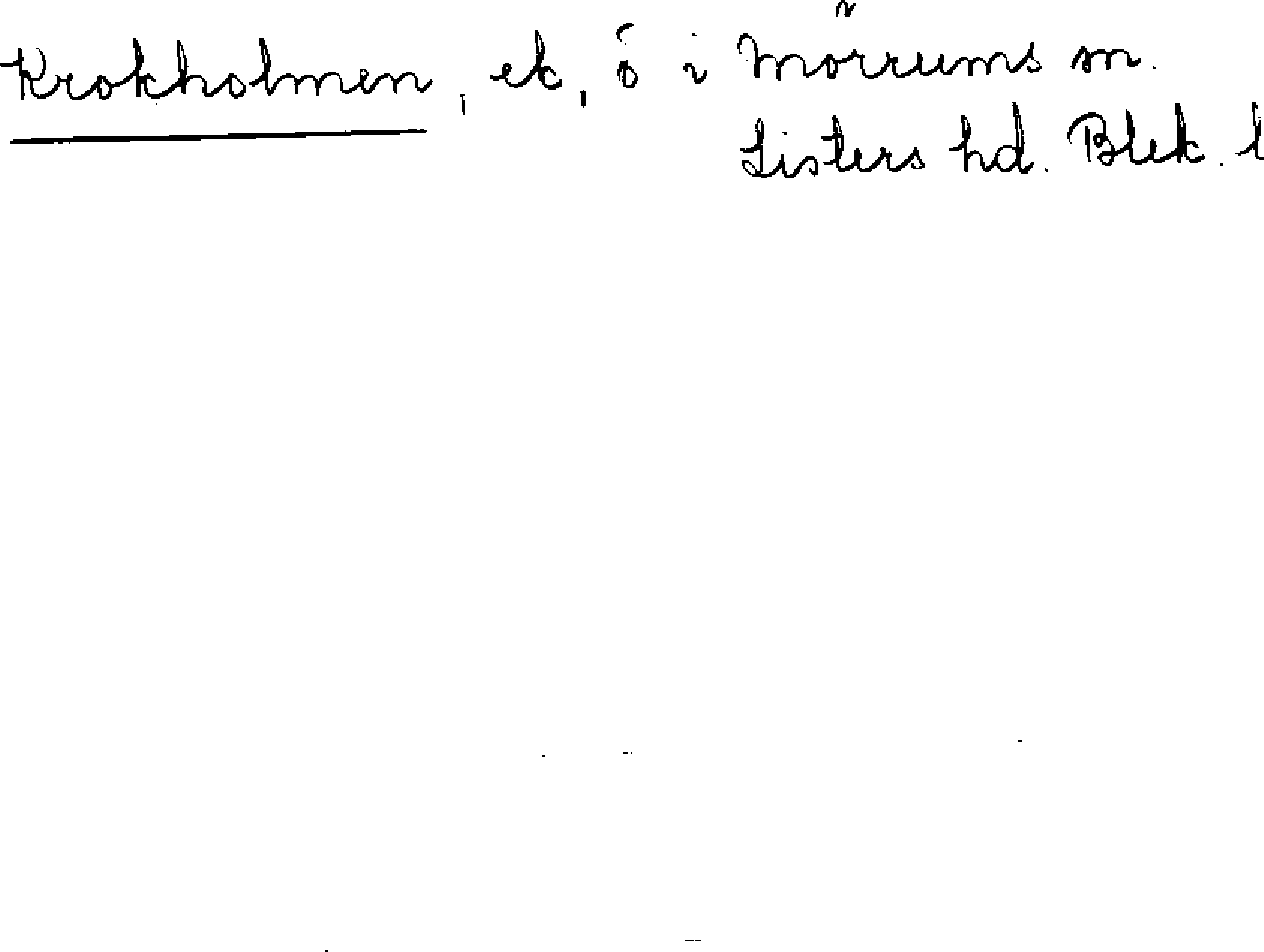 Krokholmen, ek, ö i Mörrums sn.
Listers hd. Blek. l